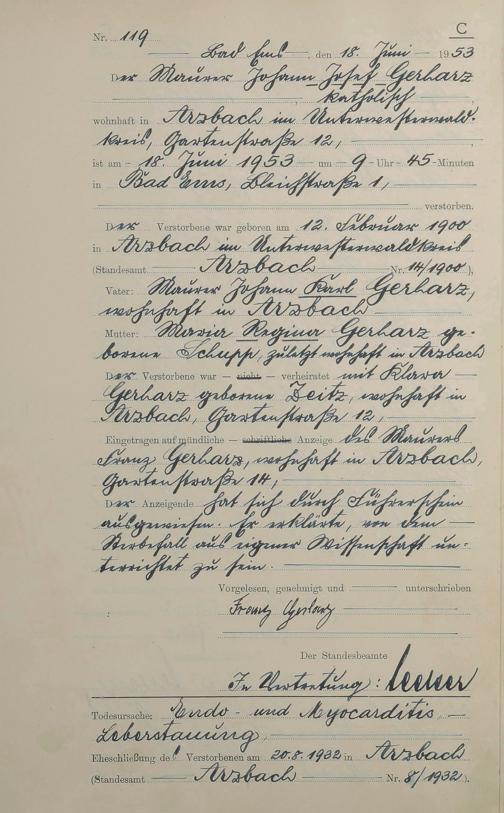 C
Nr. 119
Bad Ems, den 18. Juni 1953
Der Maurer Johann Josef Gerharz
katholisch
wohnhaft in Arzbach im Unterwesterwald-
kreis, Gartenstraße 12,
ist am 18. Juni 1953 um 9 Uhr 45 Minuten
in Bad Ems, Bleichstraße 1,
verstorben.
Der Verstorbene war geboren am 12. Februar 1900
in Arzbach im Unterwesterwaldkreis
(Standesamt Arzbach Nr. 14/1900),
Vater: Maurer Johann Karl Gerharz,
wohnhaft in Arzbach
Mutter: Maria Regina Gerharz ge-
borene Schupp, zuletzt wohnhaft in Arzbach
Der Verstorbene war — nicht — verheiratet mit Klara
Gerharz geborene Zeitz, wohnhaft in
Arzbach, Gartenstraße 12,
Eingetragen auf mündliche — schriftliche Anzeige des Maurers
Franz Gerharz, wohnhaft in Arzbach,
Gartenstraße 14,
Der Anzeigende hat sich durch Führerschein
ausgewiesen. Er erklärte, von dem
Sterbefall aus eigner Wissenschaft un-
terrichtet zu sein.
Vorgelesen, genehmigt und unterschrieben
Franz Gerharz
Der Standesbeamte
In Vertretung:
Todesursache: Endo- und Myocarditis,
Leberstauung
Eheschließung des Verstorbenen am 20.8.1932 in Arzbach
(Standesamt Arzbach Nr. 8/1932).